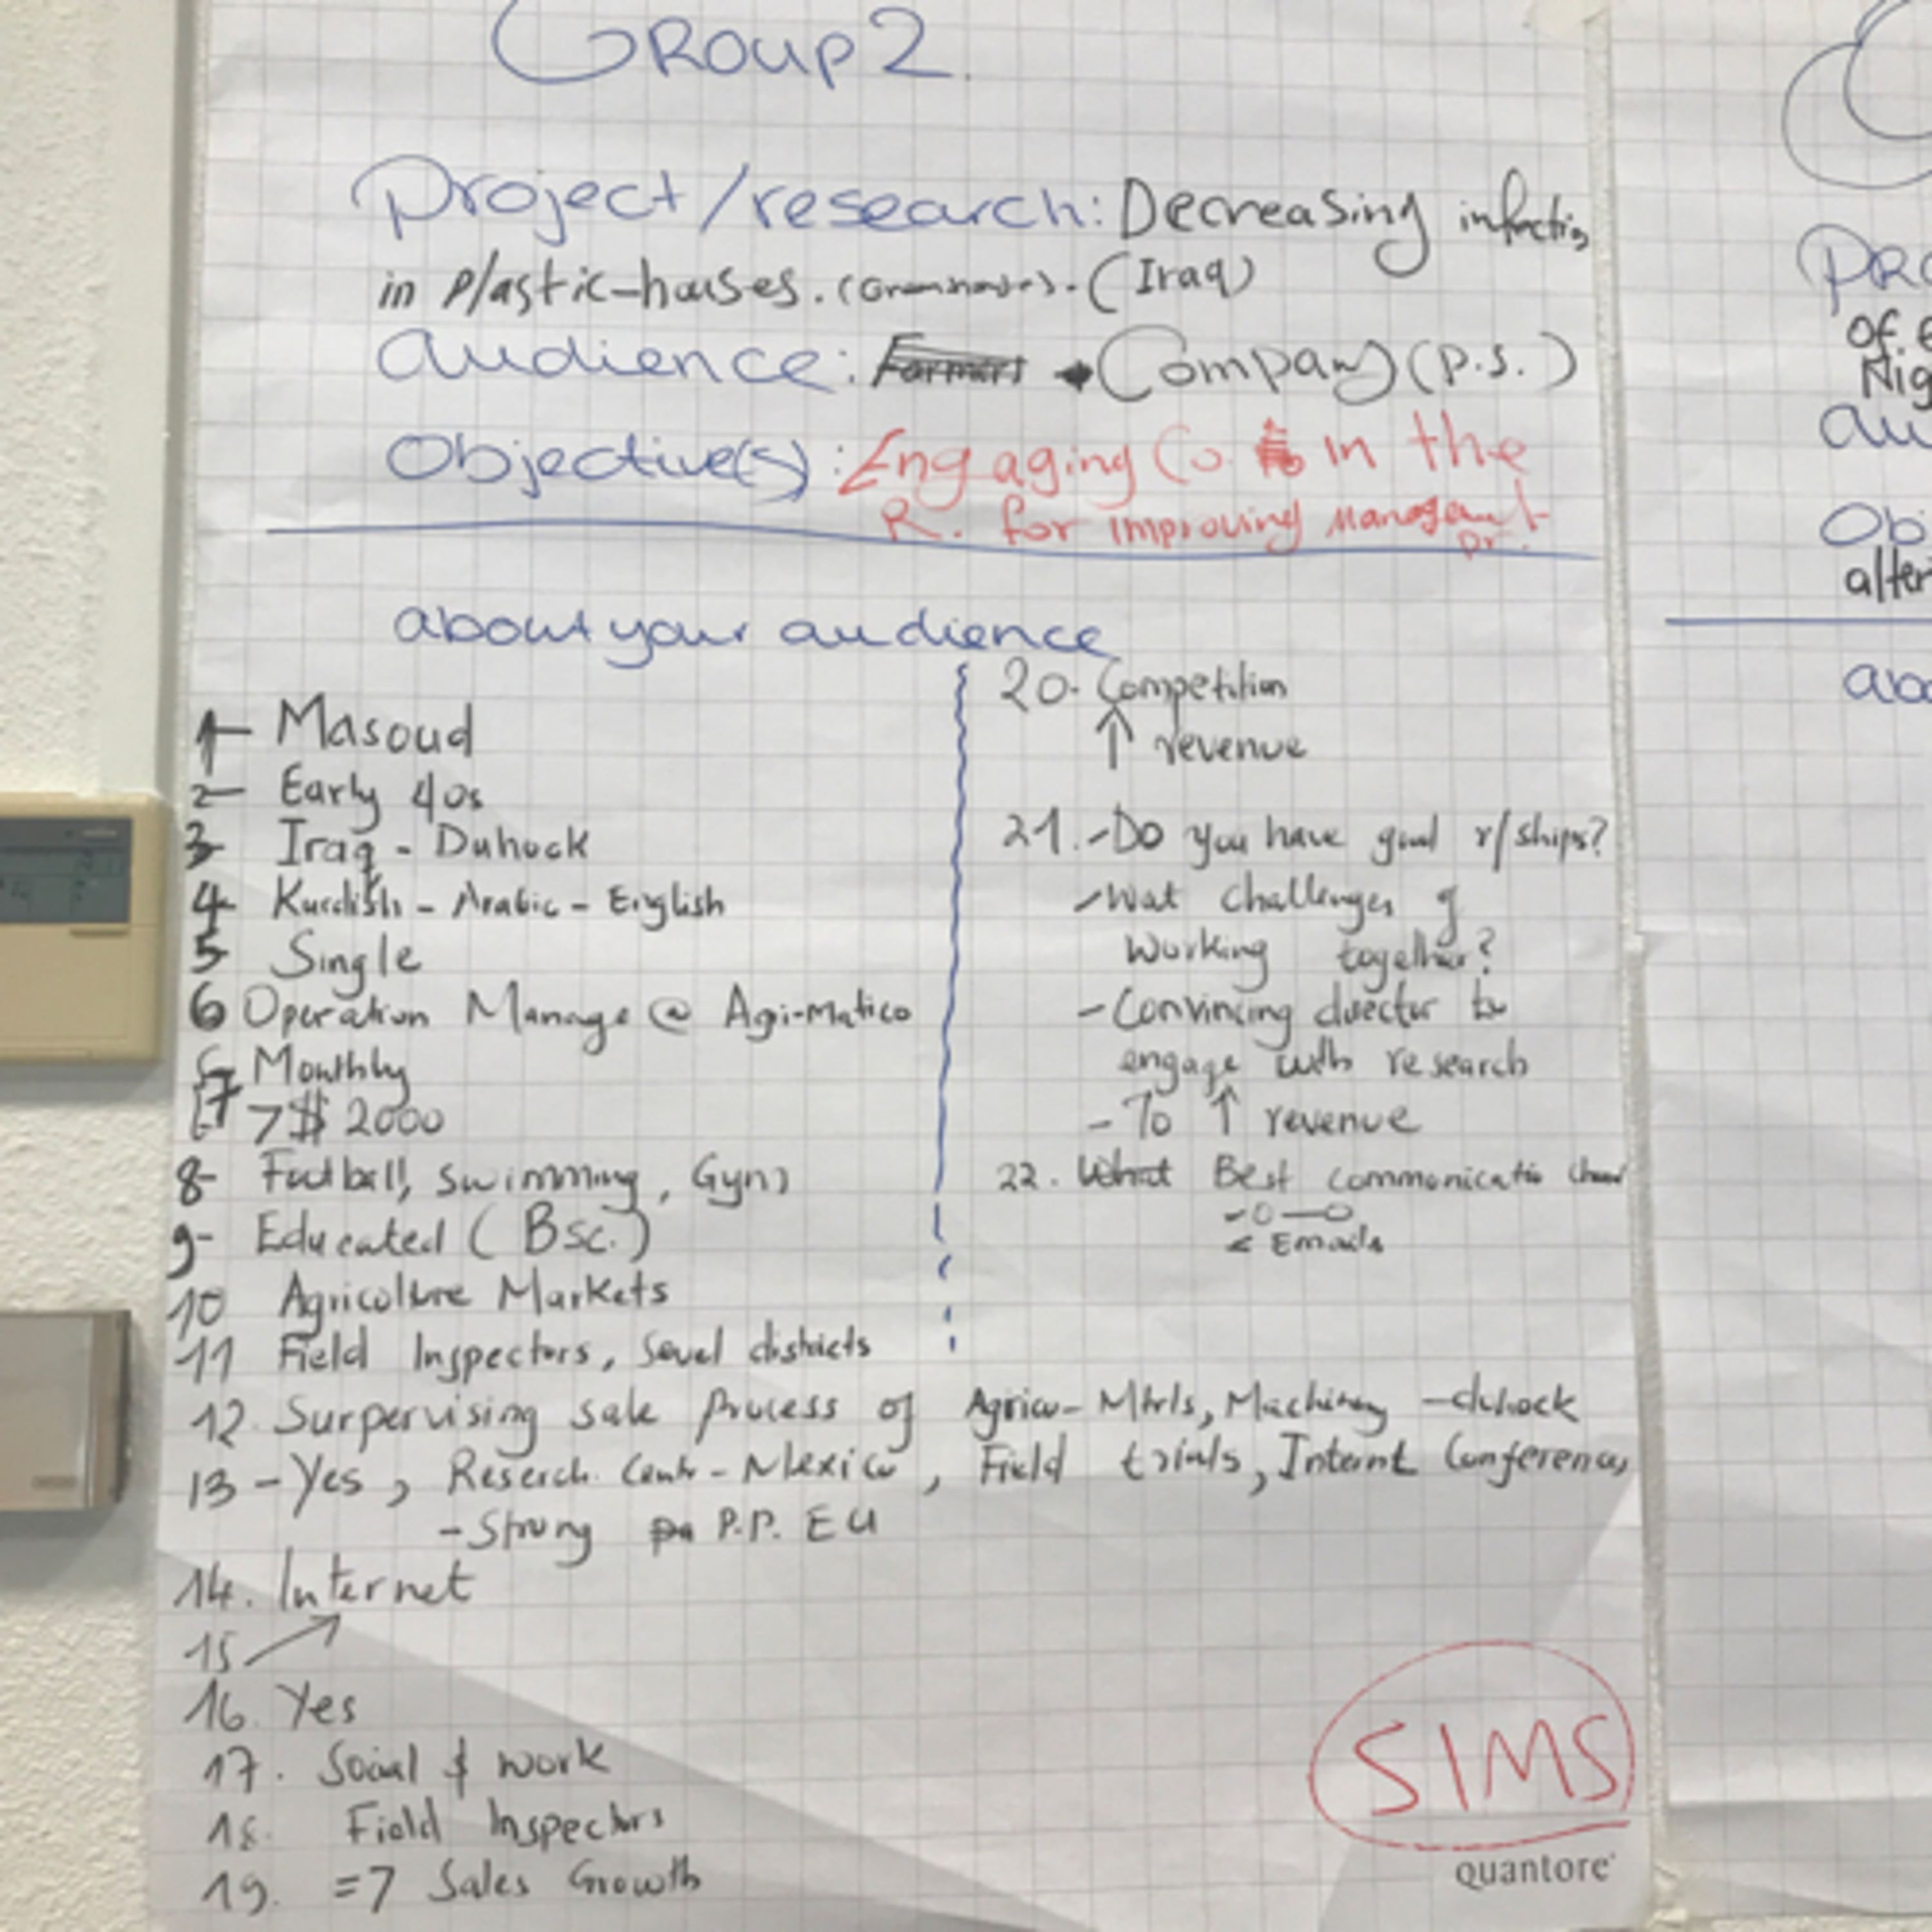 GROUP 2.
Project/research: Decreasing infection
in plastic-houses. (Greenhouses). (Iraq)
Audience: Farmers Company (P.S.)
Objective(s): Engaging Co in the
R. for improving Managemt
pr.
about your audience
1- Masoud
2- Early 40s
3- Iraq - Duhock
4- Kurdish - Arabic - English
5- Single
6 Operation Manage @ Agi-matico
Monthly
7 > $ 2000
8- Football, swimming, Gym
9- Educated (Bsc.)
10 Agricolture Markets
11 Field Inspectors, districts
12. Surpervising sale process of Agricu- Mtrls, Machinery - duhock
13 - Yes, Reserch. Centr - Mexico, Field trials, Internt Conferences
- Strong P.P. EU
14. Internet
15
16. Yes
17. Social & work
18. Field Inspectors
19. => Sales Growth
20. Competition
↑ revenue
21. - Do you have good r/ships?
- Wat challenges of
working together?
- Convincing director to
engage with research
- To ↑ revenue
22. What Best communicatio
- O—O
Emails
SIMS
quantore
PRO
of
Nig
au
Obj
alter
abo